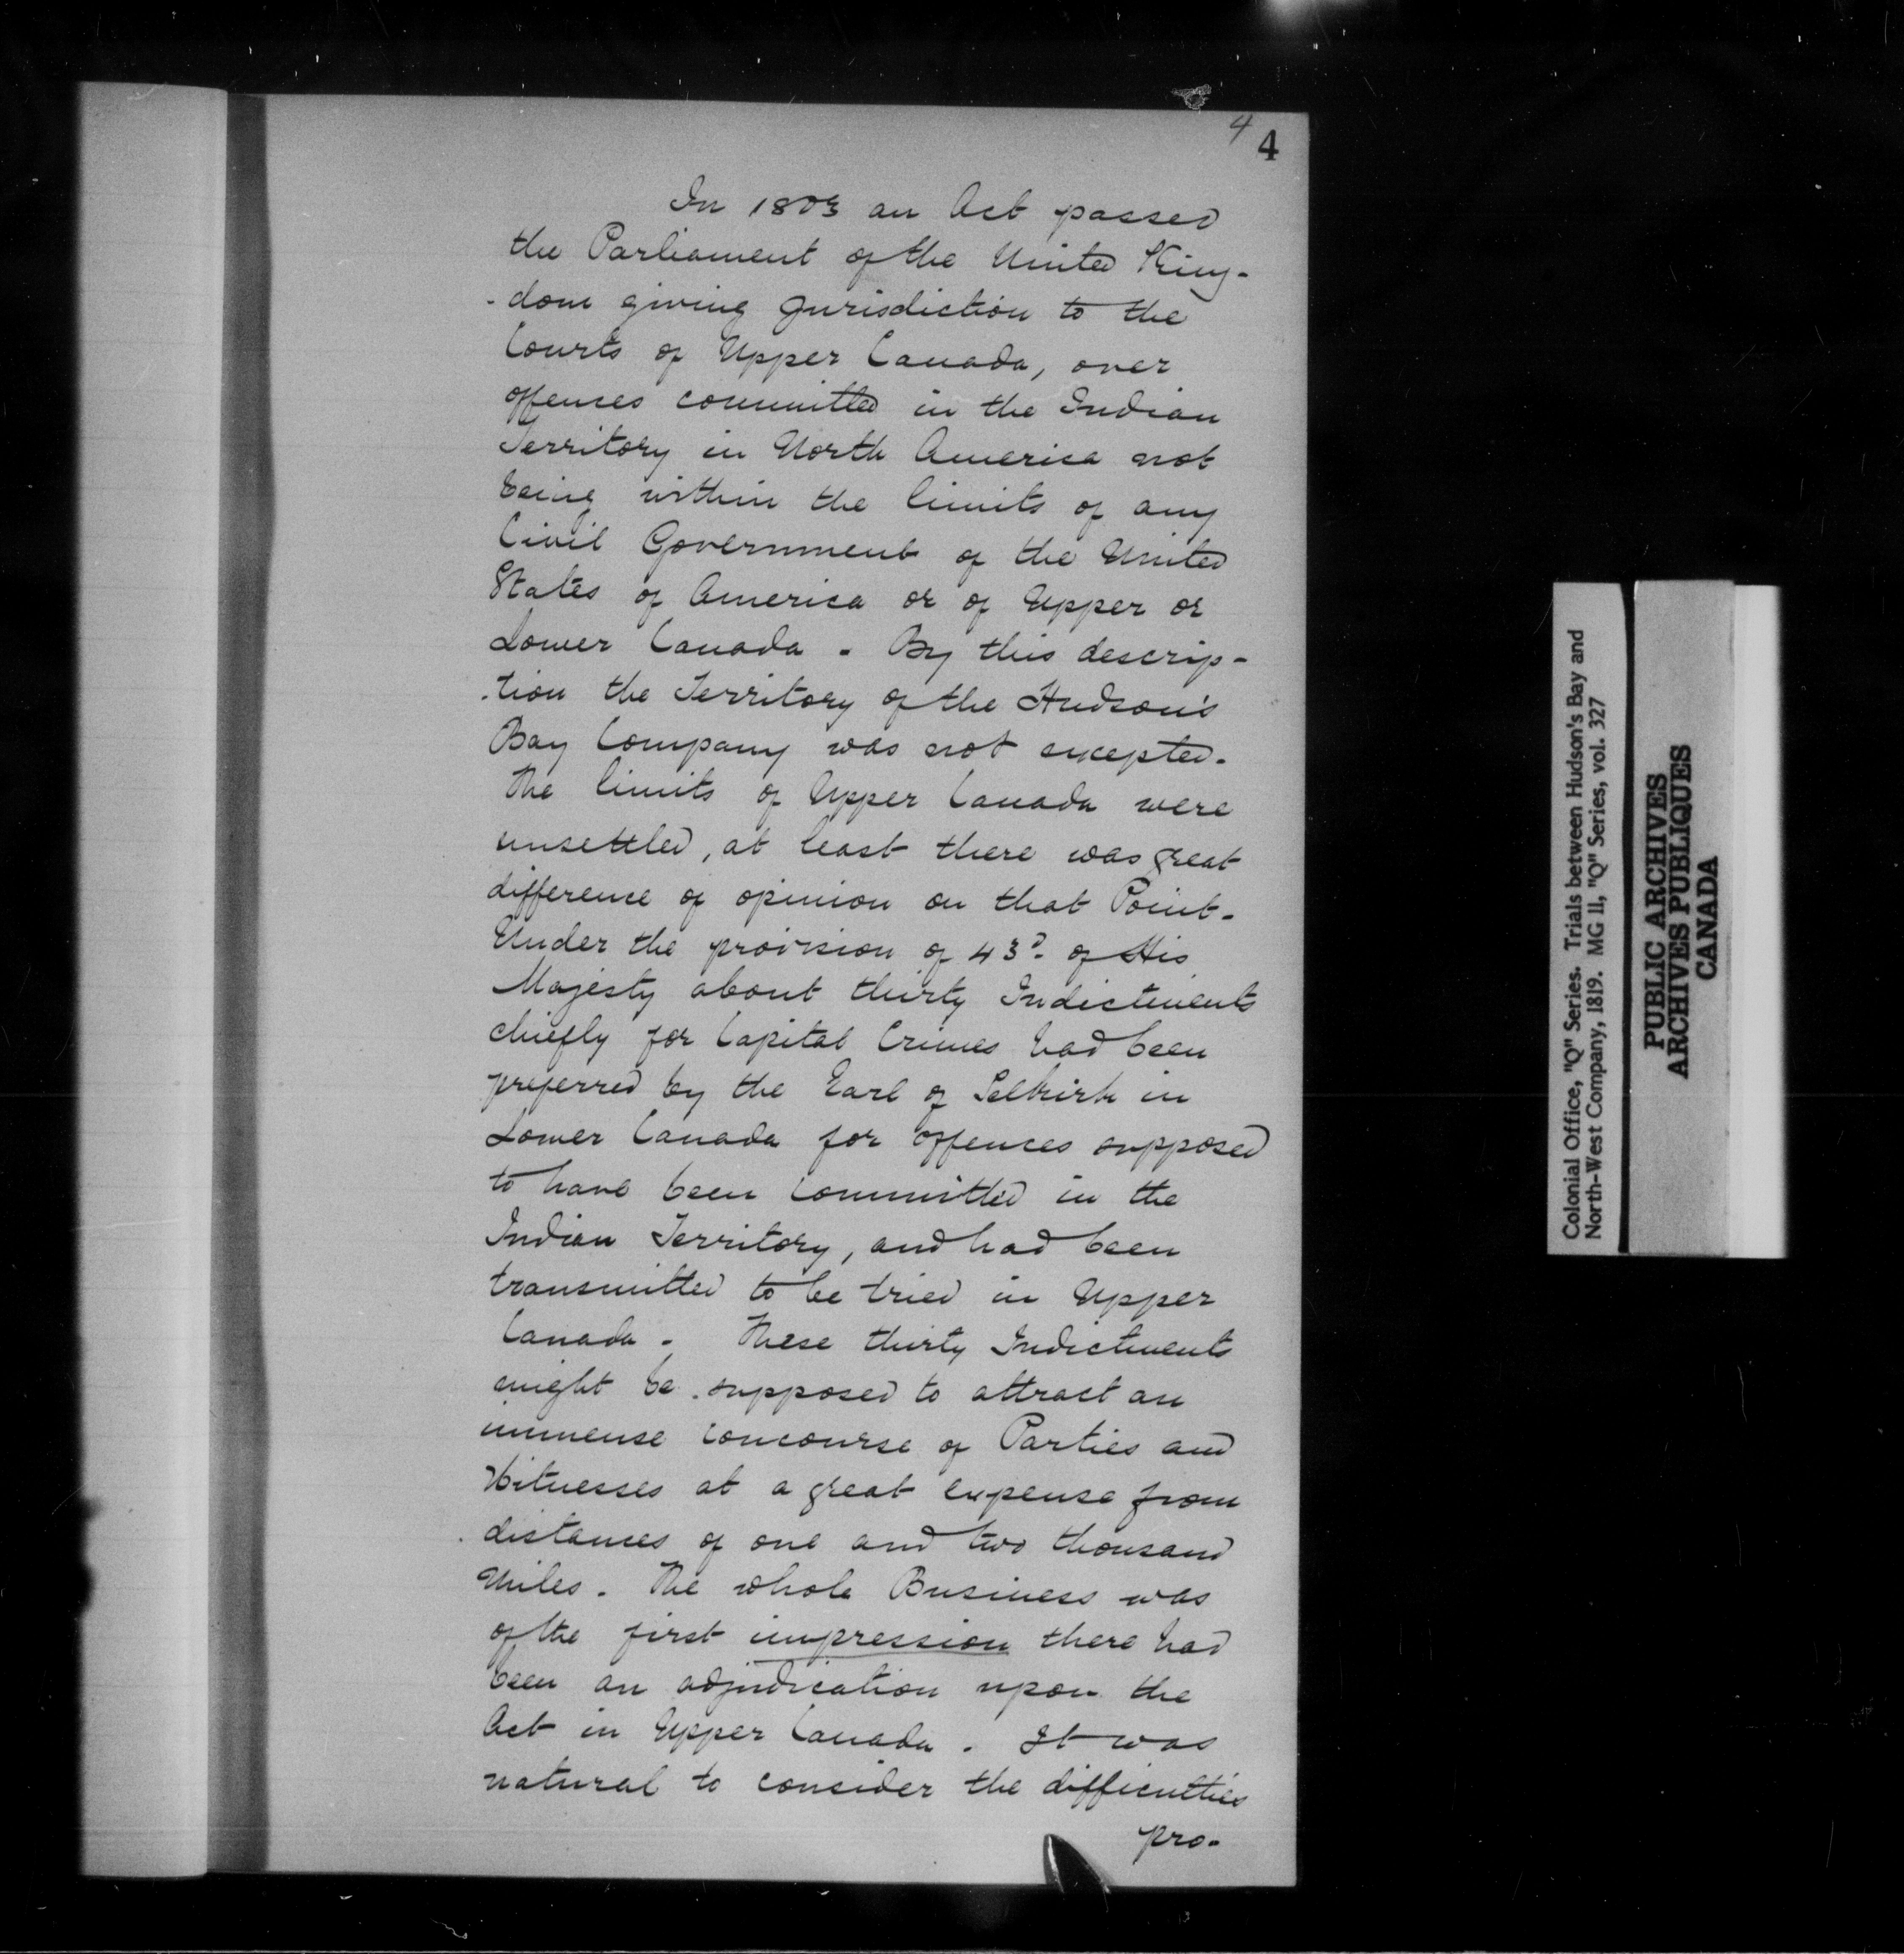 4
4
In 1803 an Act passed
the Parliament of the United King-
-dom giving Jurisdiction to the
Courts of Upper Canada, over
offences committed in the Indian
Territory in North America not
being within the limits of any
Civil Government of the United
States of America or of Upper or
Lower Canada. By this descrip-
-tion the Territory of the Hudson's
Bay Company was not excepted.
The limits of Upper Canada were
unsettled, at least there was great
difference of opinion on that Point.
Under the provision of 43d. of His
Majesty about thirty Indictments
chiefly for Capital Crimes had been
preferred by the Earl of Selkirk in
Lower Canada for offences supposed
to have been committed in the
Indian Territory, and had been
transmitted to be tried in Upper
Canada. These thirty Indictments
might be supposed to attract an
immense concourse of Parties and
Witnesses at a great expense from
distances of one and two thousand
Miles. The whole Business was
of the first impression there had
been an adjudication upon the
Act in Upper Canada. It was
natural to consider the difficulties
pro-
Colonial Office, "Q" Series. Trials between Hudson's Bay and
North-West Company, 1819. MG 11, "Q" Series, vol. 327
PUBLIC ARCHIVES
ARCHIVES PUBLIQUES
CANADA